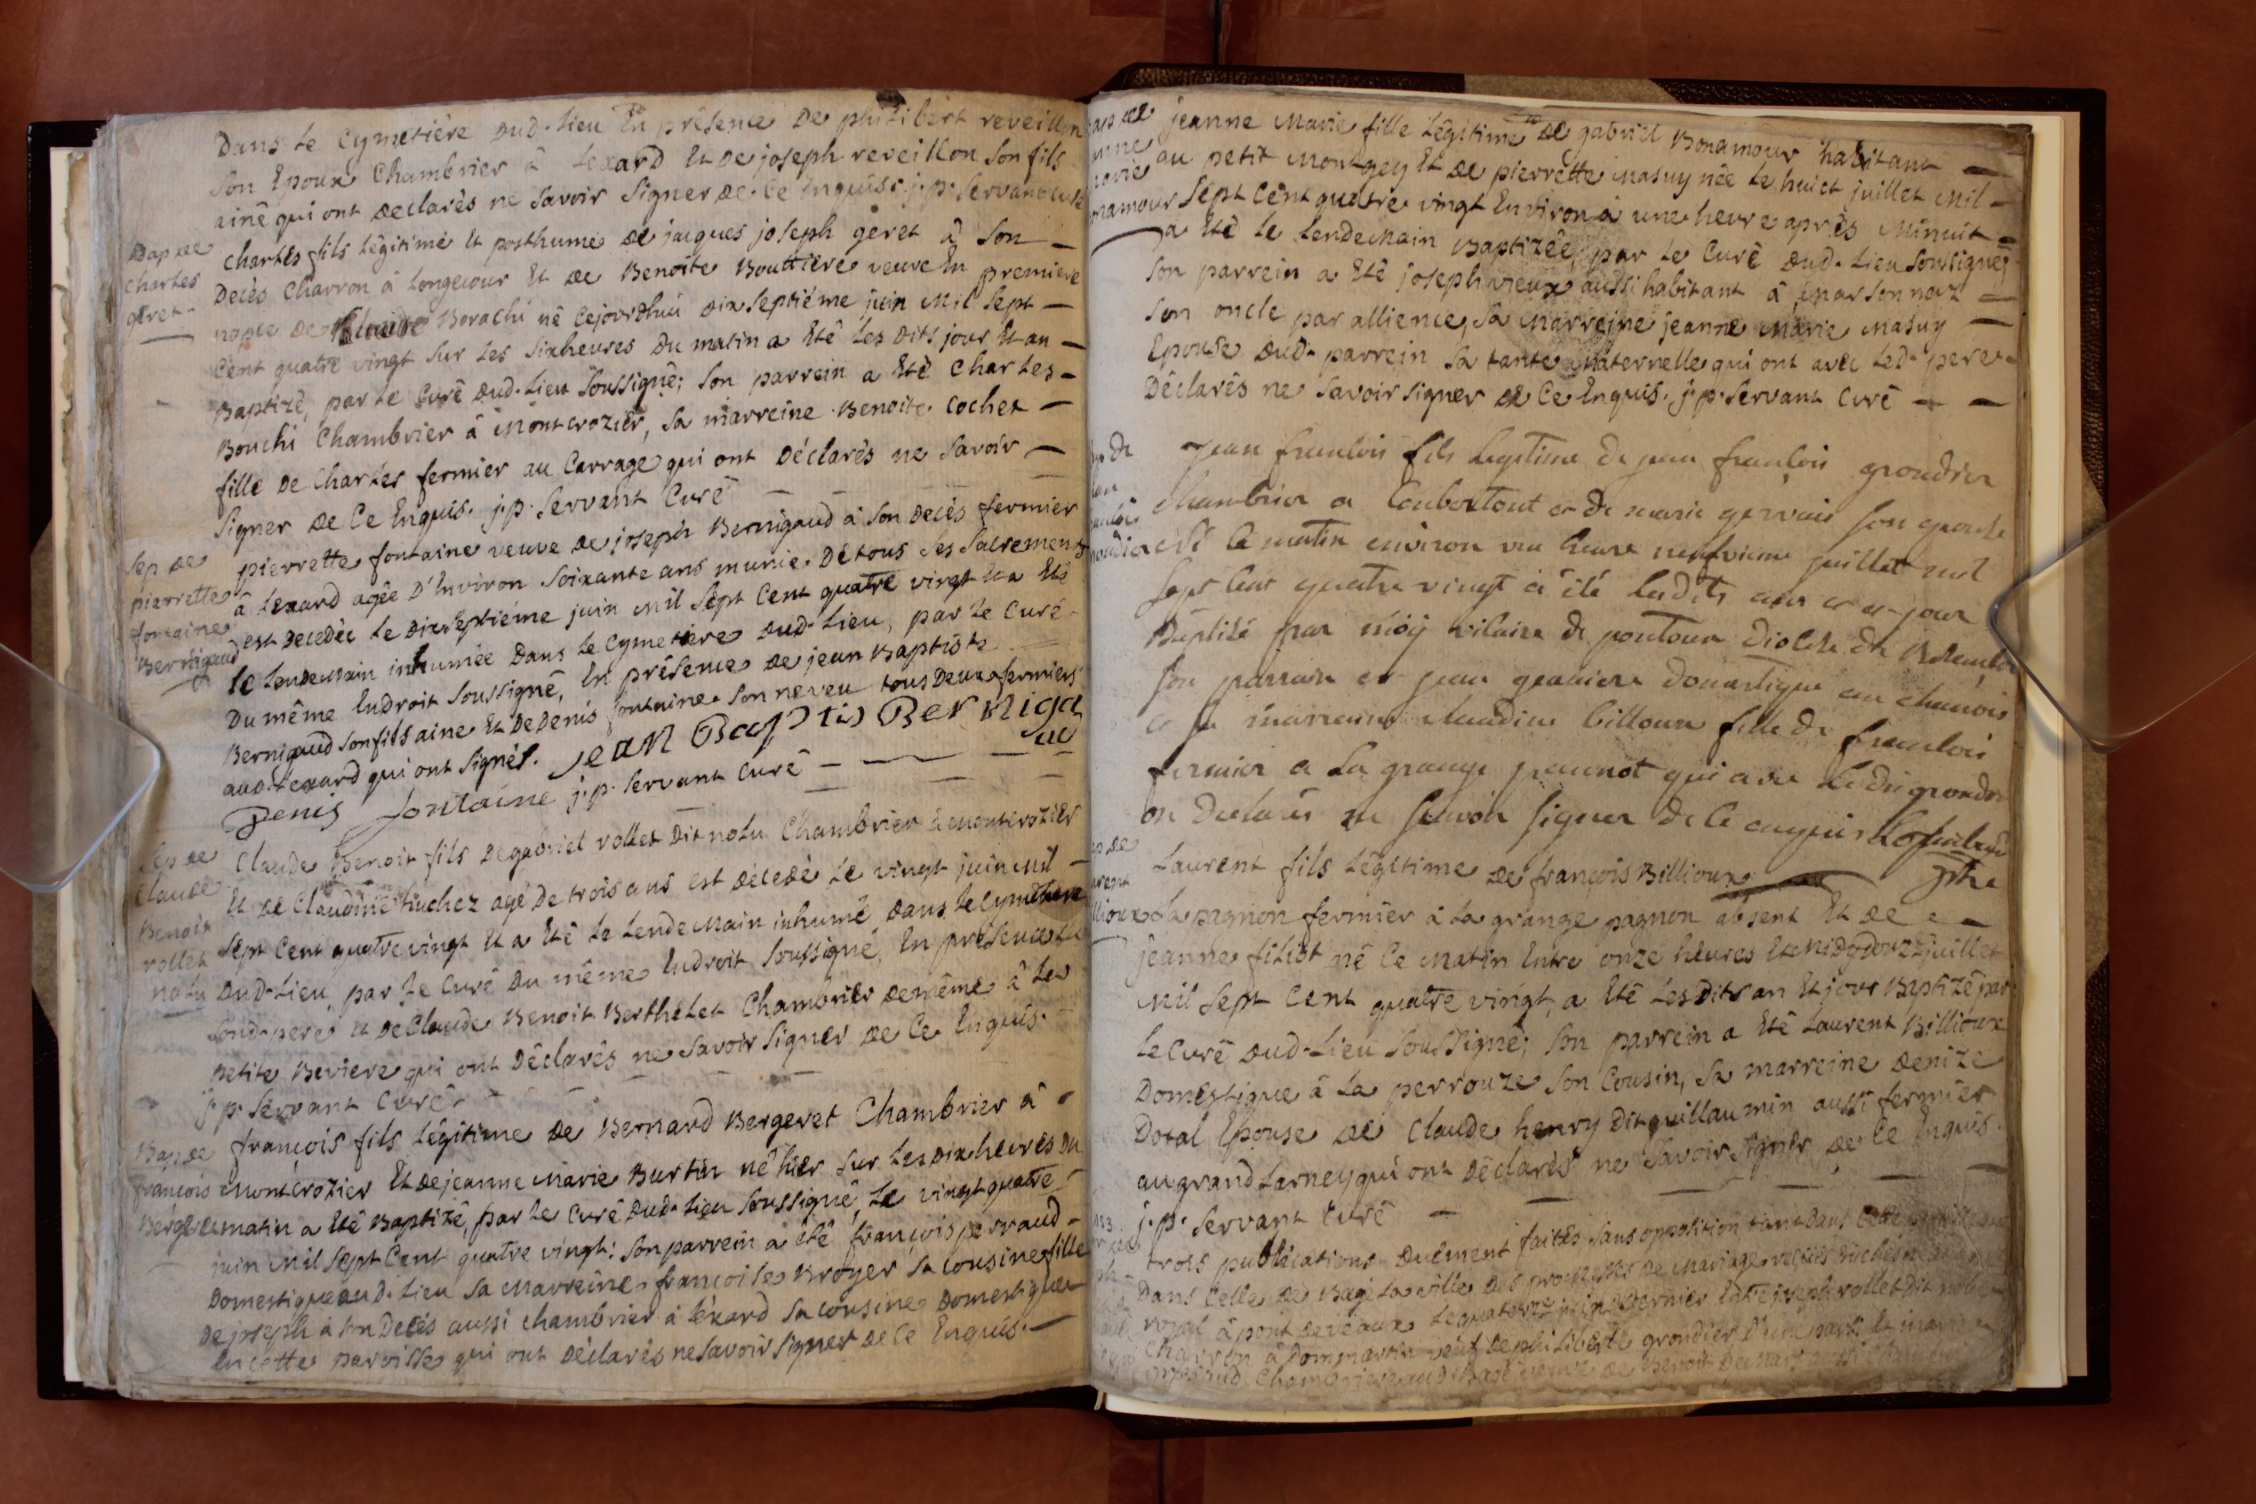 Dans le Cymetiére dud. lieu En présence De philibert reveillon
son Epoux Chambrier â lexard Et de joseph reveillon son fils
ainê qui ont declarés ne savoir signer de ce Enquis. j. p. servant curé
Bap de
charles
geret
charles fils légitime Et posthume de jacques joseph geret â son
Decès charron à longecour Et de Benoite Bouttiere veuve En premiere
nopce de Claude Borachi nê cejourdhui dix septiéme juin mil sept
Cent quatre vingt sur les sixheures du matin a Etê les dits jour Et an
Baptizê, par le Curê dud. lieu soussignê; son parrein a Etê Charles
Bouchi Chambrier â Montcrozier, sa marreine Benoite Cochet
fille De Charles fermier au Carrage qui ont Déclarès ne savoir
signer de Ce Enquis. j. p. servant Curê
Sep de
pierrette
fontaine
Bernigaud
pierrette fontaine veuve de joseph Bernigaud â son decés fermier
â lexard agêe D'Environ soixante ans munie De tous ses sacrements
est decedée le dixseptiéme juin mil sept Cent quatre vingt Et a Etê
le lendemain inhumée Dans le Cymetiere dud. lieu, par le Curé
Du même Endroit soussignê, En présence de jean Baptiste
Bernigaud son fils aine Et De Denis fontaine son neveu tous Deux fermiers
aud. lexard qui ont signés. jean Baptis Berniga
ud
Denis fontaine j. p. servant Curê
Sep de
Claude
Benoit
vollet
natu
Claude Benoit fils de gabriel vollet Dit natu Chambrier à montcrozier
Et de Claudine tuchez agê de trois ans est decedé le vingt juin mil
sept Cent quatre vingt Et a Etê le lendemain inhumê dans le cymetiere
dud. lieu par le Curê Du même Endroit soussignê, En présence du
sond. pere et de Claude Benoit Berthelet Chambrier de même â la
petite Beviere qui ont Déclarés ne savoir signer de Ce Enquis.
j. p. servant Curê
Bap de
françois
Bergeret
françois fils légitime de Bernard Bergeret Chambrier à
Montcrozier Et de jeanne Marie Burtin nê hier sur les dix heures du
matin a Etê Baptizê, par le Curê dud. lieu soussignê, le vingt quatre
juin mil sept Cent quatre vingt: son parrein a été françois perraud
Domestique aud. lieu sa Marreine françoise Broyer sa cousine fille
De joseph à son Decés aussi chambrier â lexard sa cousine Domestique
En cette paroisse qui ont déclarés ne savoir signer de Ce Enquis.
jeanne Marie fille légitime de gabriel Bonamour habitant
au petit Montgey Et de pierrette Masuy née le huict juillet mil
sept Cent quatre vingt Environ à une heure aprês Minuit
a Etê le lendemain Baptizêe, par le Curê dud. lieu soussignê;
son parrein a Etê joseph vieux aussi habitant â marsonnaz
son oncle par allience, sa marreine jeanne Marie Masuy
Epouse dud. parrein sa tante maternelle qui ont avec led. pere
Déclarés ne savoir signer de Ce Enquis. j. p. servant Curê
jean francois fils legitime de jean francois grondier
chambrier a Loubertout et de marie gervais son epouse
né le matin environ une heure neufvieme juillet mil
sept cent quatre vingt a été lesdits an et jour
Baptisé par moy vicaire de pontoux
son parrain est jean domestique au
et sa marraine claudine billoux fille de francois
fermier a la grange pannot qui avec ledit grondier
on declarés ne scavoir signer de ce enquis
ptre
Laurent fils légitime de françois Billioux
La pagnon fermier à la grange pagnon absent Et de
jeanne filiot nê ce matin Entre onze heures Et midy douze juillet
mil sept Cent quatre vingt, a Etê les dits an Et jour Baptizê par
le Curê dud. lieu soussignê; son parrein a Etê Laurent Billioux
Domestique â la perrouze son Cousin, sa marreine denize
Dotal Epouse de Claude henry dit guillaumin aussi fermier
au grand larney qui ont déclarés ne savoir signer de Ce Enquis.
j. p. servant Curê
trois publications duement faites sans opposition tant dans cette
Dans Celle de Bagé la ville des promesses de Mariage
royal à pont de veaux le quatorze juin dernier Entre joseph vollet dit
charron à Dommartin veuf de philiberte grondier D'une part